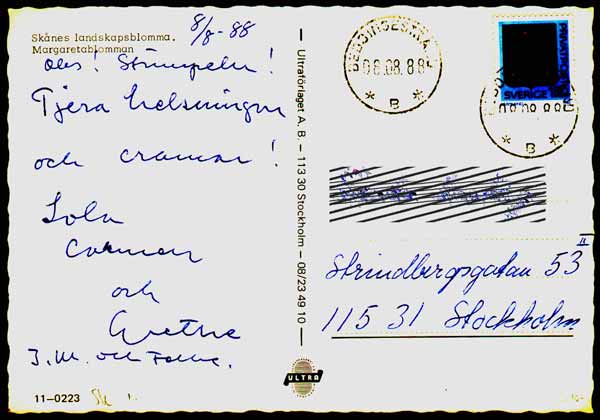 Skånes landskapsblomma,
Margaretablomman
8/8-88
obs! Stämpeln!
Tjera helsningar
och cramar!
Lola
Carmen
och
Grethe
J.M. och
11-0223
Ultraförlaget A.B. – 113 30 Stockholm – 08/23 49 10
ULTRA
08.08.88
* B *
SVERIGE
08.08.88
* B *
Strindbergsgatan 53 II
115 31 Stockholm